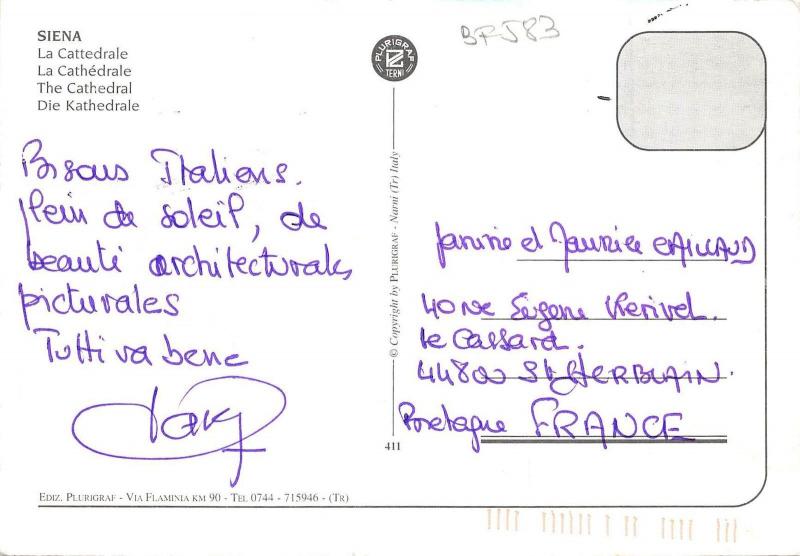 SIENA
La Cattedrale
La Cathédrale
The Cathedral
Die Kathedrale
PLURIGRAF
TERNI
BFJ583
Bisous Italiens.
plein de soleil, de
beauté architecturales,
picturales
Tutti va bene
© Copyright by PLURIGRAF - Narni (Tr) Italy
Janine et Maurice CAILLAUD
40 rue Eugène Kerivel.
Le Cassard.
44800 St HERBLAIN.
Bretagne FRANCE
411
EDIZ. PLURIGRAF - VIA FLAMINIA KM 90 - TEL 0744 - 715946 - (TR)